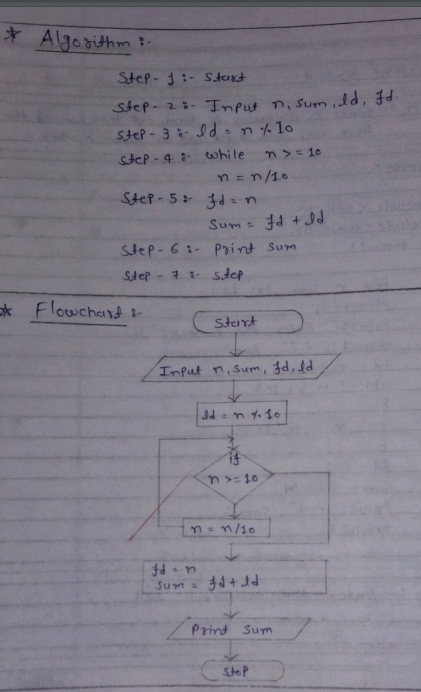 * Algorithm :-
Step - 1 :- Start
Step - 2 :- Input n, sum, ld, fd.
Step - 3 :- ld = n % 10
Step - 4 :- while n >= 10
n = n/10
Step - 5 :- fd = n
Sum = fd + ld
Step - 6 :- Print Sum
Step - 7 :- step
* Flowchart :-
Start
Input n, sum, fd, ld
ld = n % 10
if
n >= 10
n = n/10
fd = n
Sum = fd + ld
Print Sum
Stop